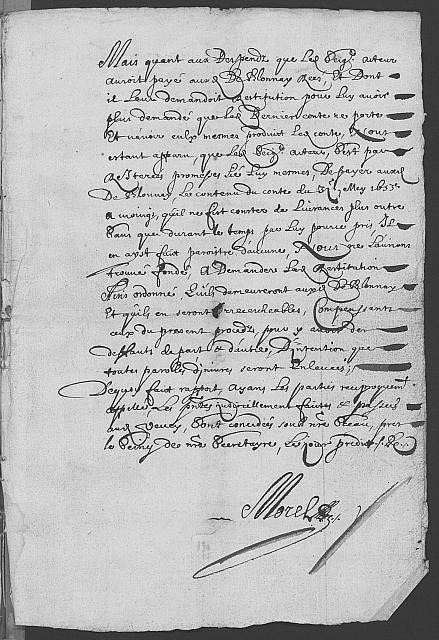 Mais quant aux Despendz que Led Seigr acteur
auroit payé auxd De Blonnay Rees, Et Dont
il Leur demandoit Restitution pour Luy avoir
plus demandé que Led Dernier conte ne porte
Et n'avoir eulx mesmes produit Led conte, Nous
estant apparu, que Led Seigr acteur, s'est par
reiterees promesses lié Luy mesmes, De payer auxd
De Blonnay, Le contenu du conte du May 1653
a moings, qu'il ne fist conster de Livrances plus oultre
Sans que durant le temps par Luy pource pris Il
en ayt fait paroistre d'aucune, Nous ne L'aurions
trouvé fondé, A Demander Lad Restitution
Ains ordonné Qu'ils demeureront auxd De Blonnay
Et qu'ils en seront irrecerchables, Compensants
ceux du present procedz, pour y avoir des
deffauts de part & d'autre, D'intention que
toutes parolles d'injures seront Enlevees,
Dequoy faict rapport, Ayans Les parties reciproquemt
appellé, Les judiciellement faites & passees
aud Vevey, Sont concedees soubz nre Seau,
le Seing de nre Secretayre, Le jour predit
Morel